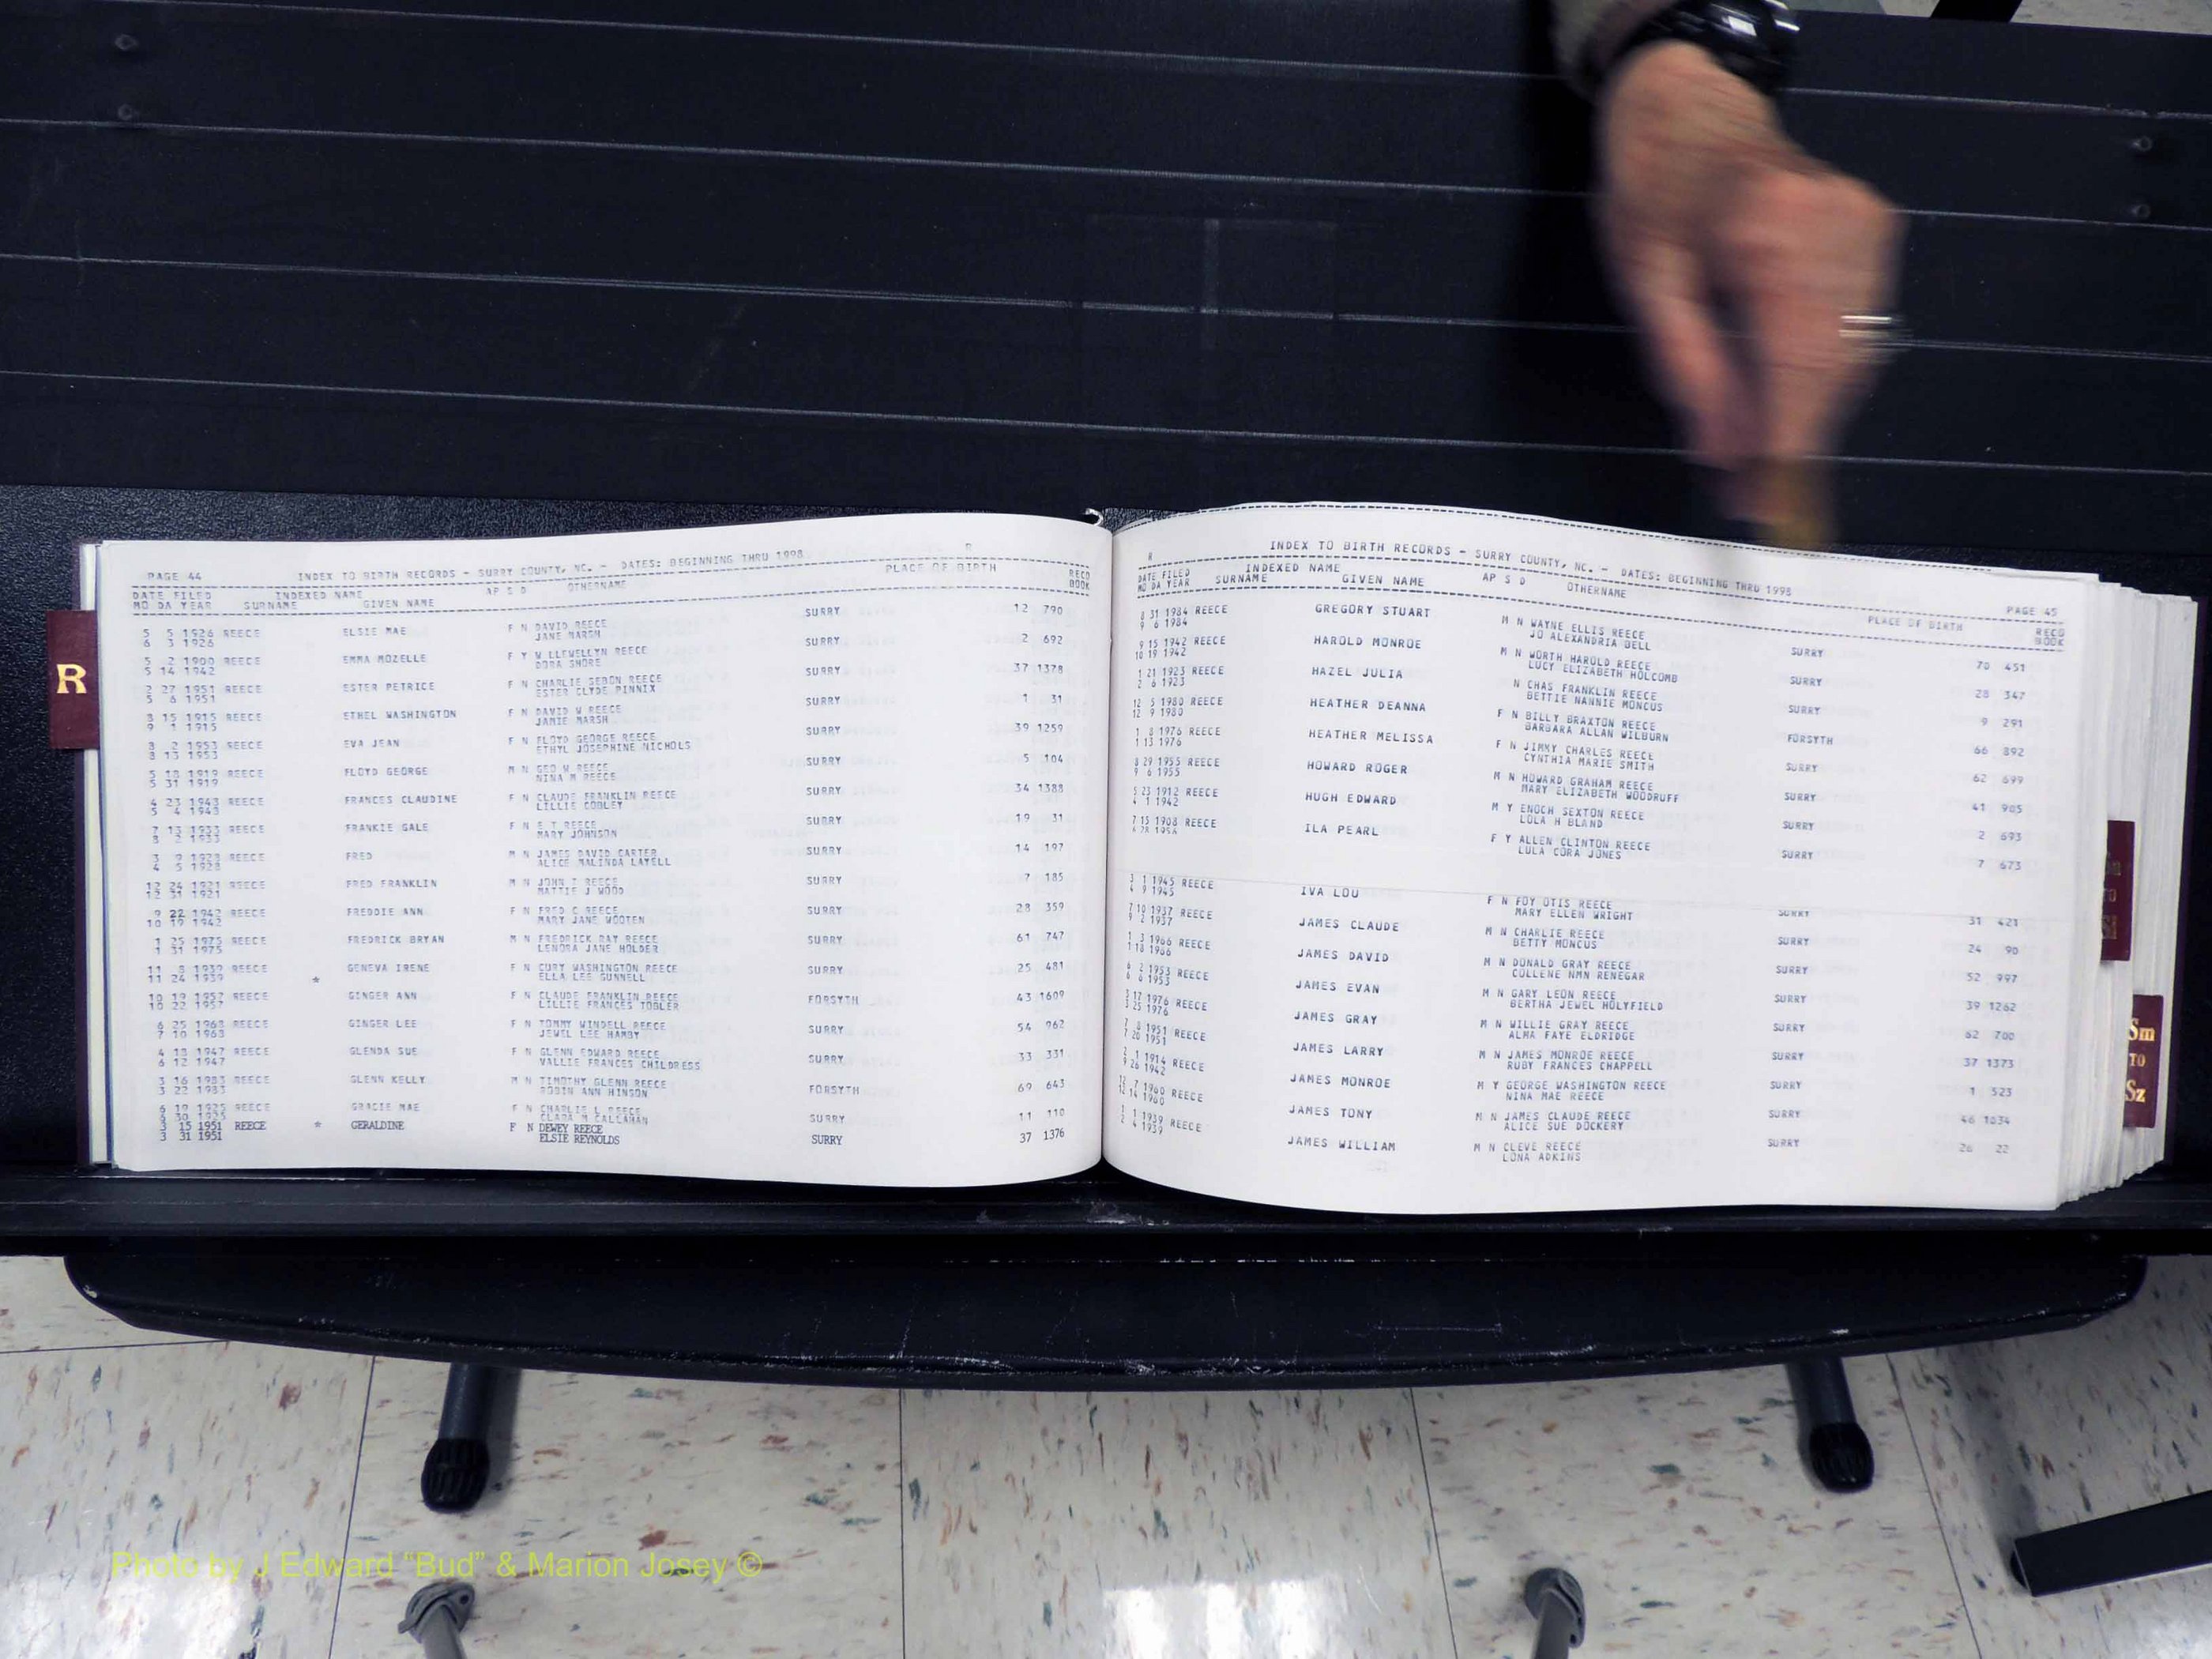 R
PAGE 44 INDEX TO BIRTH RECORDS - SURRY COUNTY, NC. - DATES: BEGINNING THRU 1998
DATE FILED INDEXED NAME AP S D OTHERNAME PLACE OF BIRTH RECD
MO DA YEAR SURNAME GIVEN NAME BOOK
5 5 1926 REECE ELSIE MAE F N DAVID REECE SURRY 12 790
6 3 1926 JANE MARSH
5 2 1900 REECE EMMA MOZELLE F Y W LLEWELLYN REECE SURRY 2 692
5 14 1942 DORA SHORE
2 27 1951 REECE ESTER PETRICE F N CHARLIE SEBON REECE SURRY 37 1378
5 6 1951 ESTER CLYDE PINNIX
8 15 1915 REECE ETHEL WASHINGTON F N DAVID W REECE SURRY 1 31
9 1 1915 JANIE MARSH
8 2 1953 REECE EVA JEAN F N FLOYD GEORGE REECE SURRY 39 1259
8 13 1953 ETHYL JOSEPHINE NICHOLS
5 18 1919 REECE FLOYD GEORGE M N GEO W REECE SURRY 5 104
5 31 1919 NINA M REECE
4 23 1943 REECE FRANCES CLAUDINE F N CLAUDE FRANKLIN REECE SURRY 34 1388
5 4 1943 LILLIE COBLEY
7 13 1933 REECE FRANKIE GALE F N E T REECE SURRY 19 31
8 2 1933 MARY JOHNSON
3 9 1928 REECE FRED M N JAMES DAVID CARTER SURRY 14 197
4 5 1928 ALICE MALINDA LAYELL
12 24 1921 REECE FRED FRANKLIN M N JOHN T REECE SURRY 7 185
12 31 1921 MATTIE J WOOD
9 22 1942 REECE FREDDIE ANN F N FRED C REECE SURRY 28 359
10 19 1942 MARY JANE WOOTEN
1 25 1975 REECE FREDRICK BRYAN M N FREDRICK RAY REECE SURRY 61 747
1 31 1975 LENORA JANE HOLDER
11 8 1939 REECE GENEVA IRENE F N CURY WASHINGTON REECE SURRY 25 481
11 24 1939 * ELLA LEE GUNNELL
10 19 1957 REECE GINGER ANN F N CLAUDE FRANKLIN REECE FORSYTH 43 1609
10 22 1957 LILLIE FRANCES TOBLER
6 25 1968 REECE GINGER LEE F N TOMMY WINDELL REECE SURRY 54 962
7 10 1968 JEWEL LEE HAMBY
4 18 1947 REECE GLENDA SUE F N GLENN EDWARD REECE SURRY 33 331
6 12 1947 VALLIE FRANCES CHILDRESS
3 16 1983 REECE GLENN KELLY M N TIMOTHY GLENN REECE FORSYTH 69 643
3 22 1983 ROBIN ANN HINSON
6 19 1925 REECE GRACIE MAE F N CHARLIE L REECE SURRY 11 110
6 30 1925 CLARA M CALLAHAN
3 15 1951 REECE * GERALDINE F N DEWEY REECE SURRY 37 1376
3 31 1951 ELSIE REYNOLDS
R
INDEX TO BIRTH RECORDS - SURRY COUNTY, NC. - DATES: BEGINNING THRU 1998 PAGE 45
DATE FILED INDEXED NAME AP S D OTHERNAME PLACE OF BIRTH RECD
MO DA YEAR SURNAME GIVEN NAME BOOK
8 31 1984 REECE GREGORY STUART M N WAYNE ELLIS REECE SURRY 70 451
9 6 1984 JO ALEXANDRIA BELL
9 15 1942 REECE HAROLD MONROE M N WORTH HAROLD REECE SURRY 28 347
10 19 1942 LUCY ELIZABETH HOLCOMB
1 21 1923 REECE HAZEL JULIA N CHAS FRANKLIN REECE SURRY 9 291
2 6 1923 BETTIE NANNIE MONCUS
12 5 1980 REECE HEATHER DEANNA F N BILLY BRAXTON REECE FORSYTH 66 892
12 9 1980 BARBARA ALLAN WILBURN
1 8 1976 REECE HEATHER MELISSA F N JIMMY CHARLES REECE SURRY 62 699
1 13 1976 CYNTHIA MARIE SMITH
8 29 1955 REECE HOWARD ROGER M N HOWARD GRAHAM REECE SURRY 41 905
9 6 1955 MARY ELIZABETH WOODRUFF
5 23 1912 REECE HUGH EDWARD M Y ENOCH SEXTON REECE SURRY 2 693
4 1 1942 LOLA H BLAND
7 15 1908 REECE ILA PEARL F Y ALLEN CLINTON REECE SURRY 7 673
LULA CORA JONES
3 1 1945 REECE IVA LOU F N FOY OTIS REECE SURRY 31 421
4 9 1945 MARY ELLEN WRIGHT
7 10 1937 REECE JAMES CLAUDE M N CHARLIE REECE SURRY 24 90
9 2 1937 BETTY MONCUS
1 3 1966 REECE JAMES DAVID M N DONALD GRAY REECE SURRY 52 997
1 18 1966 COLLENE NMN RENEGAR
6 2 1953 REECE JAMES EVAN M N GARY LEON REECE SURRY 39 1262
6 6 1953 BERTHA JEWEL HOLYFIELD
3 17 1976 REECE JAMES GRAY M N WILLIE GRAY REECE SURRY 62 700
3 25 1976 ALMA FAYE ELDRIDGE
7 8 1951 REECE JAMES LARRY M N JAMES MONROE REECE SURRY 37 1373
7 20 1951 RUBY FRANCES CHAPPELL
2 1 1914 REECE JAMES MONROE M Y GEORGE WASHINGTON REECE SURRY 1 523
9 26 1942 NINA MAE REECE
12 7 1960 REECE JAMES TONY M N JAMES CLAUDE REECE SURRY 46 1034
12 14 1960 ALICE SUE DOCKERY
1 1 1939 REECE JAMES WILLIAM M N CLEVE REECE SURRY 26 22
2 4 1939 LONA ADKINS
R
Sm
TO
Sz
Photo by J Edward “Bud” & Marion Josey ©